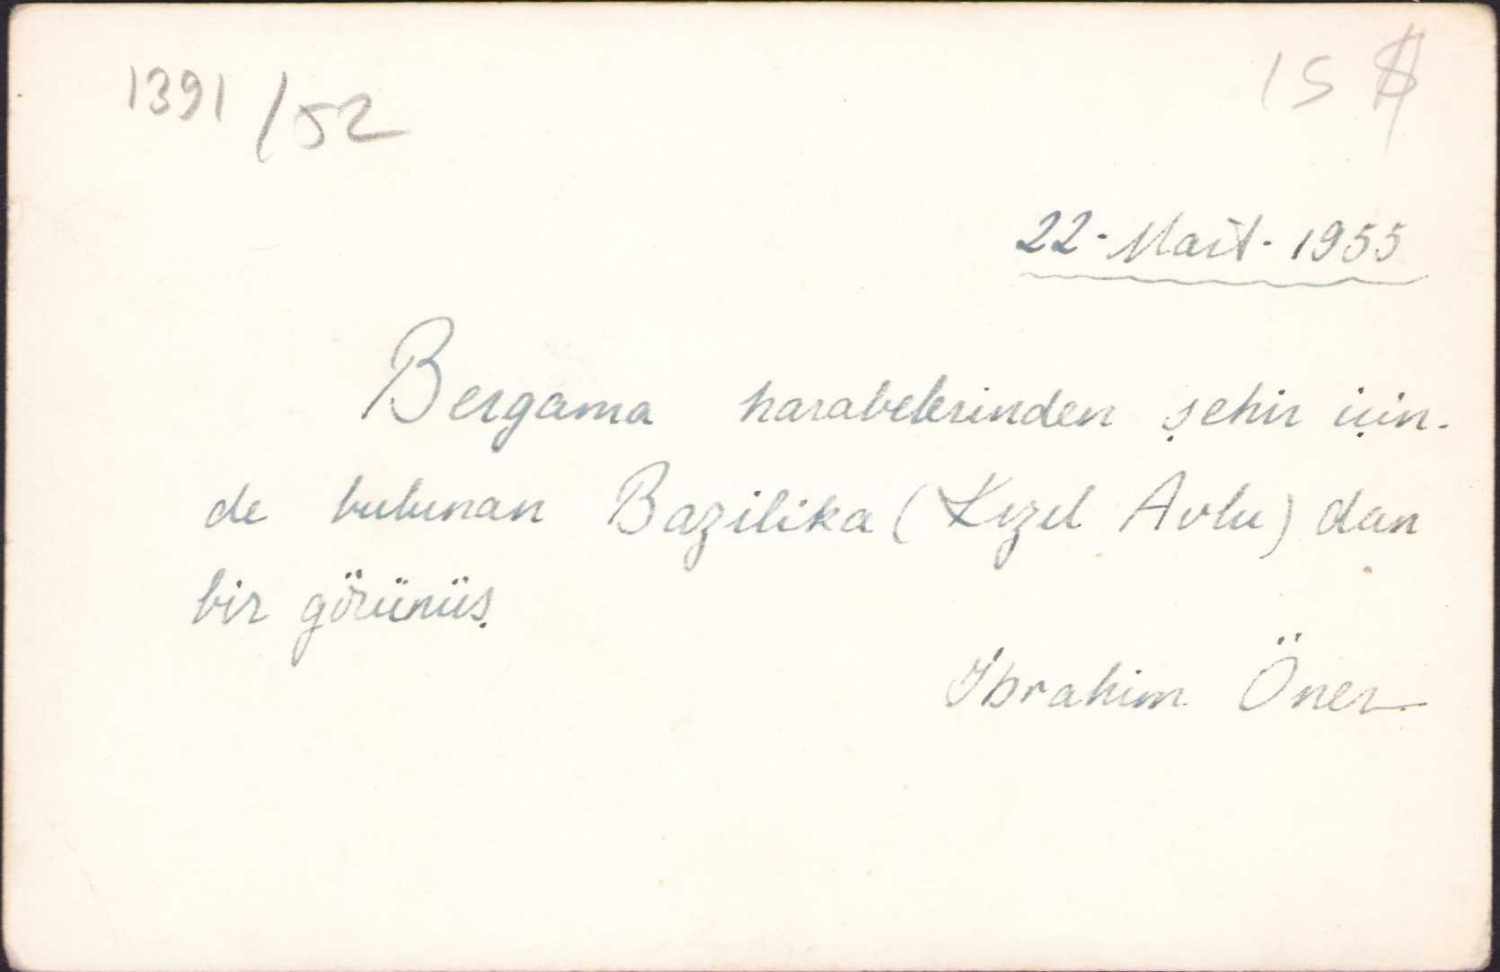 1391/52
15 $
22-Mart-1955
Bergama harabelerinden şehir için-
de bulunan Bazilika (Kızıl Avlu) dan
bir görünüş.
İbrahim Öner